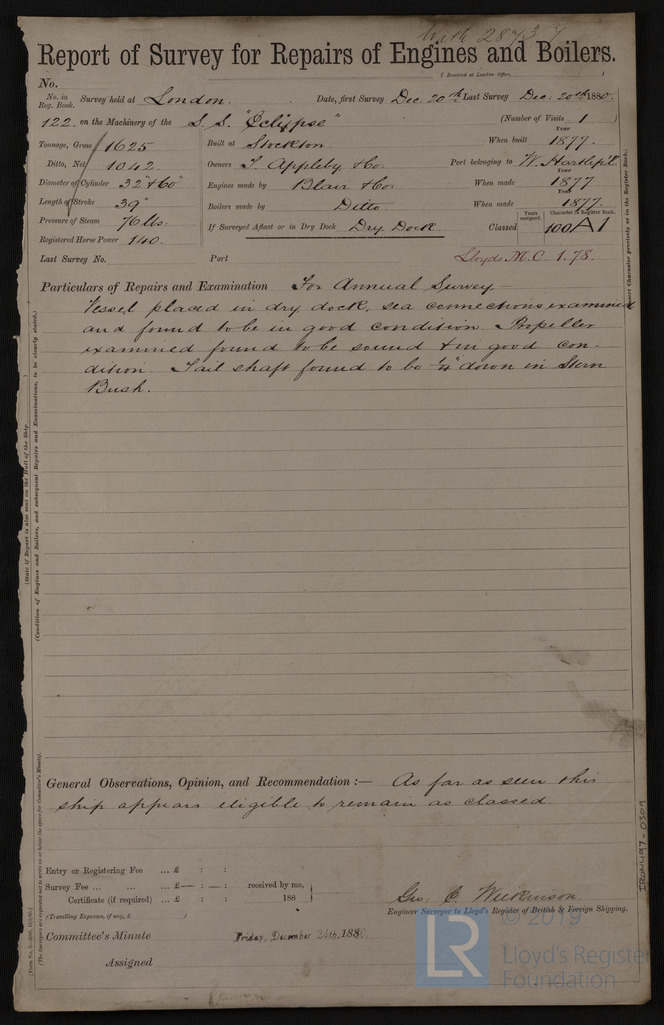 With 28737
Report of Survey for Repairs of Engines and Boilers.
(Received at London Office, )
No.
No. in Reg. Book. Survey held at London. Date, first Survey Dec 20th Last Survey Dec. 20th 1880.
122. on the Machinery of the S.S. "Eclypse" (Number of Visits 1 )
Tonnage, Gross 1625 Built at Stockton When built Year 1877.
Ditto, Net 1042 Owners T. Appleby & Co. Port belonging to W. Hartlepl
Diameter of Cylinder 32" & 60" Engines made by Blair & Co. When made Year 1877
Length of Stroke 39" Boilers made by Ditto When made Year 1877.
Pressure of Steam 76 lbs. If Surveyed Afloat or in Dry Dock Dry Dock. Classed Years assigned 100 Character in Register Book. A1
Registered Horse Power 140.
Last Survey No. Port Lloyds M.C. 1.78.
Particulars of Repairs and Examination For Annual Survey —
Vessel placed in dry dock, sea connections examined
and found to be in good condition. Propeller
examined found to be sound & in good con-
dition. Tail shaft found to be ¼" down in Stern
Bush.
General Observations, Opinion, and Recommendation :— As far as seen this
ship appears eligible to remain as classed.
Entry or Registering Fee ... £ : :
Survey Fee ... ... £ — : — : received by me,
Certificate (if required) ... £ : : 188
(Travelling Expenses, if any, £ )
Geo. C. Wilkinson
Engineer Surveyor to Lloyd's Register of British & Foreign Shipping.
Committee's Minute Friday, December 24th, 1880.
Assigned
(State if Report is also sent on the Hull of the Ship.)
(Condition of Engines and Boilers, and subsequent Repairs and Examinations, to be clearly stated.)
(The Surveyors are requested not to write on or below the space for Committee's Minute.)
Insert Character precisely as in the Register Book.
IRON497-0309
LR
© 2019
Lloyd's Register
Foundation